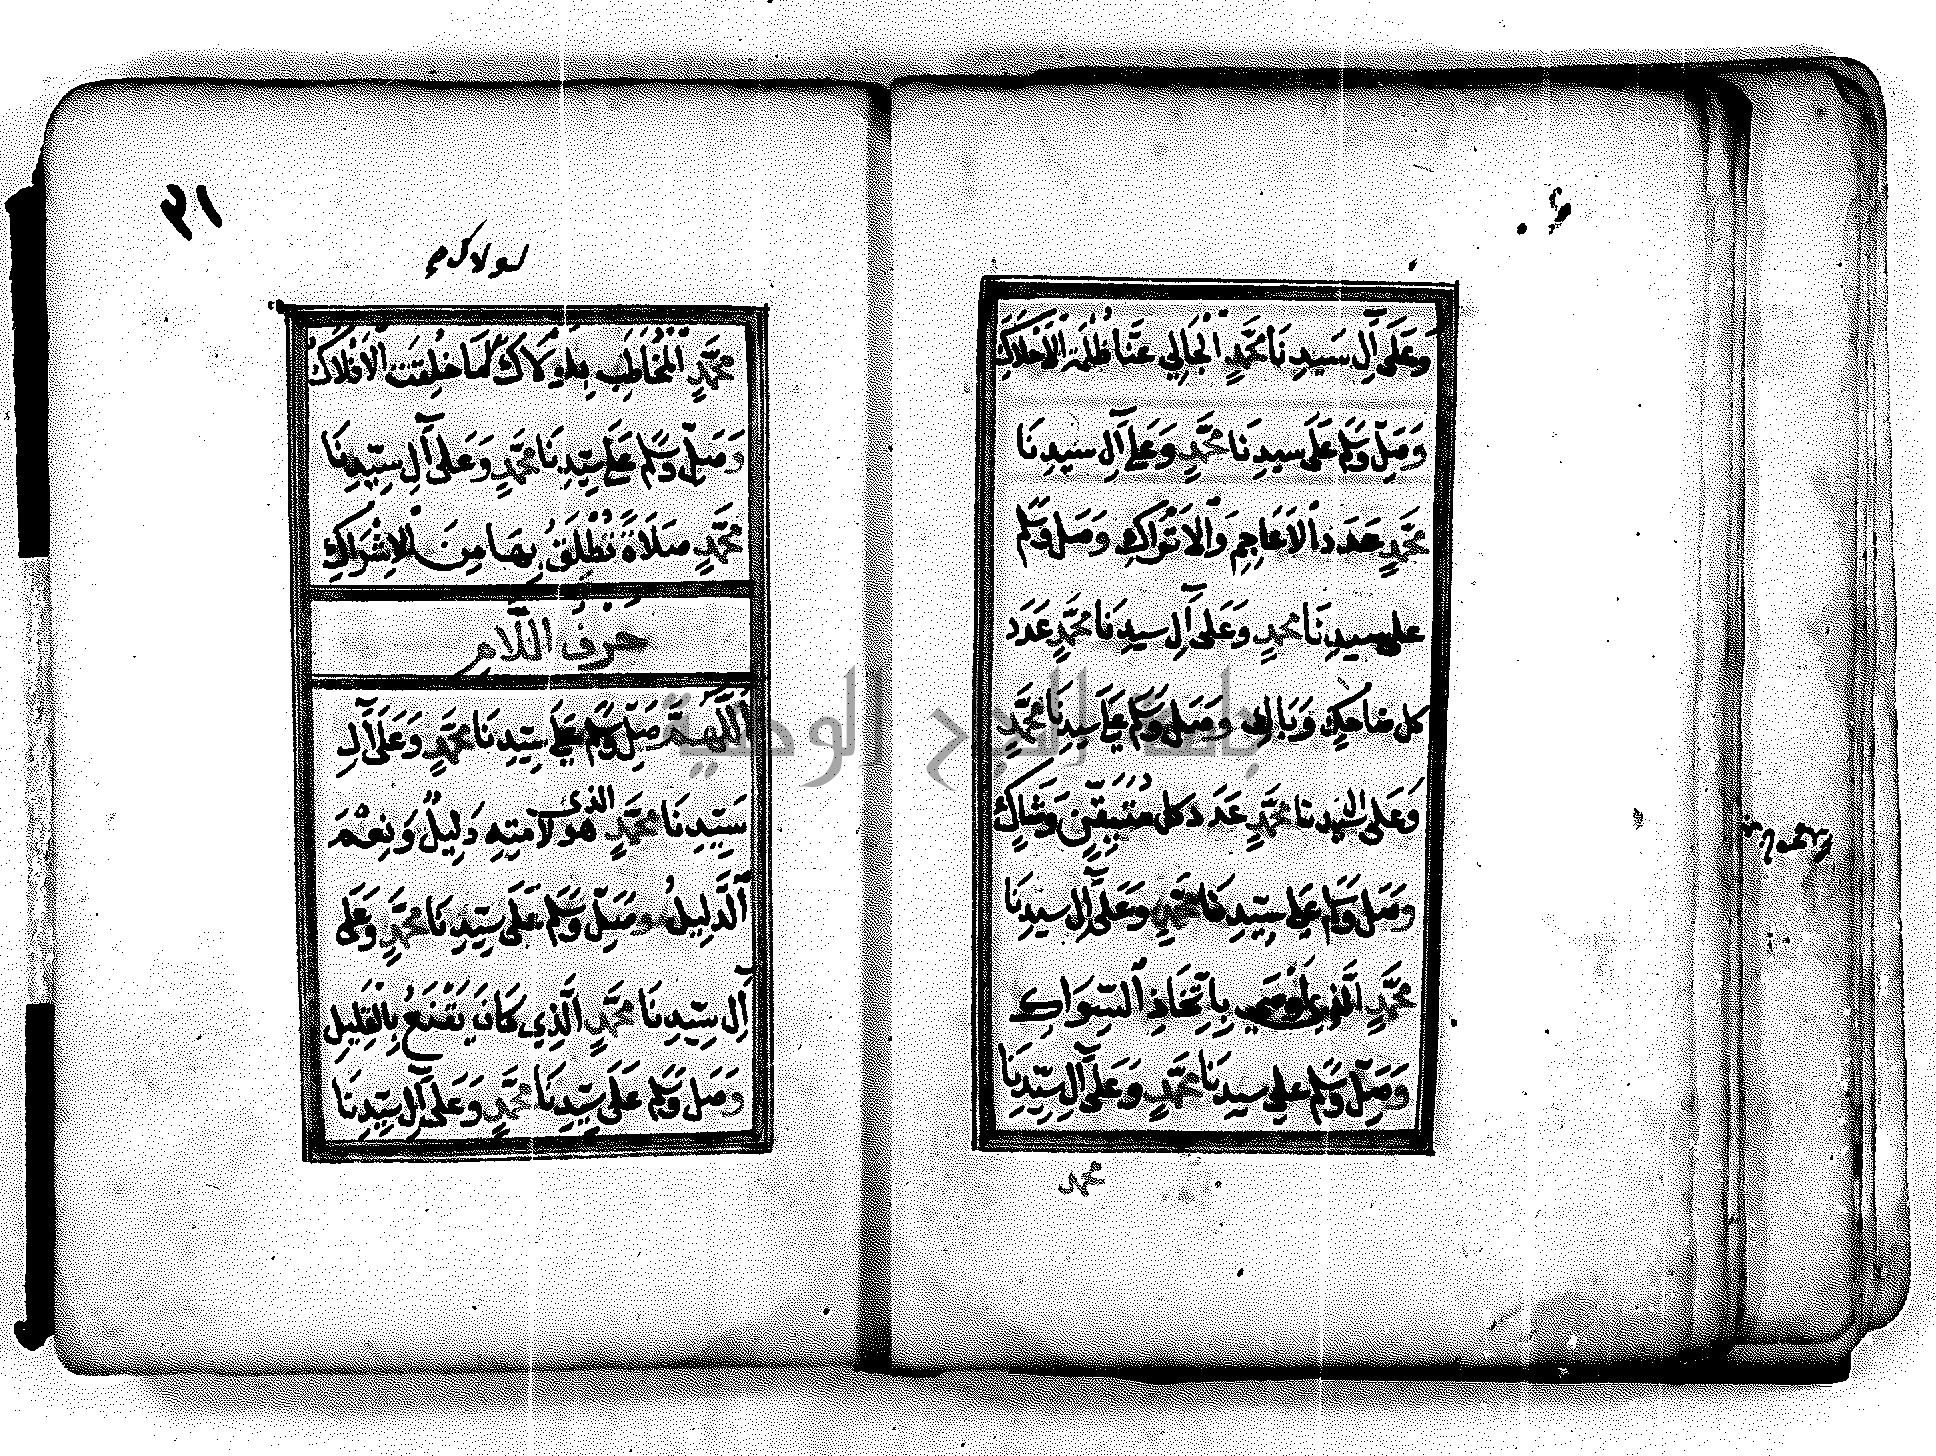 وَعَلَى آلِ سَيِدِنَا مُحَمَّدٍ اَلْجَالِي عَنَّا ظُلَمَ اَلْأَحْلَاكِ
وَصَلِّ وَسَلِّمْ عَلَى سَيِدِنَا مُحَمَّدٍ وَعَلَى آلِ سَيِدِنَا
مُحَمَّدٍ عَدَدَ اَلْاَعَاجِمِ وَالْاَتْرَاكِ وَصَلِّ وَسَلِّمْ
على سيدِنَا مُحمدٍ وَعَلَى آلِ سيدِنَا مُحَمَّدٍ عَدَدَ
كل ضاحِكٍ وَبَاكِ وصَلِّ وَسَلِّمْ عَلَى سيدِنَا مُحَمَّدٍ
وَعَلَى سيدنا مُحَمَّدٍ عَدَدَ كل مُتَيَقِّنٍ وَشَاكٍ
وصَلِّ وَسَلِّمْ على سَيّدِنَا مُحَمَّدٍ وَعَلَى آلِ سيدِنَا
مُحَمَّدٍ الَّذِي اَوْصَى بِاتِّخَاذِ اَلسِّوَاكِ
وَصَلِّ وَسَلِّمْ على سيدِنَا مُحَمَّدٍ وَعَلَى آلِ سَيِّدِنَا
محمد
٢١
لولاك م
مُحَمَّدٍ اَلْمُخَاطَبِ بِلَوْلَاكَ لَمَا خُلِقَتِ اَلْاَفْلَاكُ
وَصَلِّ وَسَلِّمْ عَلَى سَيِّدِنَا مُحَمَّدٍ وَعَلَى آلِ سَيِّدِنَا
مُحَمَّدٍ صَلَاةً تُطْلِقُ بِهَا مِنَ اَلْاِشْرَاكِ
حَرْفُ اللَّام
اَللَّهُمَّ صَلِّ وَسَلِّمْ عَلَى سَيِّدِنَا مُحَمَّدٍ وَعَلَى آلِ
سَيّدِنَا مُحَمَّدٍ الذى هُوَ لِاُمَّتِهِ دَلِيلٌ وَنِعْمَ
اَلدَّلِيلُ وصَلِّ وَسَلِّمْ عَلَى سَيِّدِنَا مُحَمَّدٍ وَعَلَى
آلِ سَيِّدِنَا مُحَمَّدٍ اَلَّذِي كَانَ يَقْنَعُ بِالْقَلِيلِ
وَصَلِّ وَسَلِّمْ عَلَى سَيِّدِنَا مُحَمَّدٍ وَعَلَى آلِ سَيِّدِنَا
جامعة النجاح الوطنية